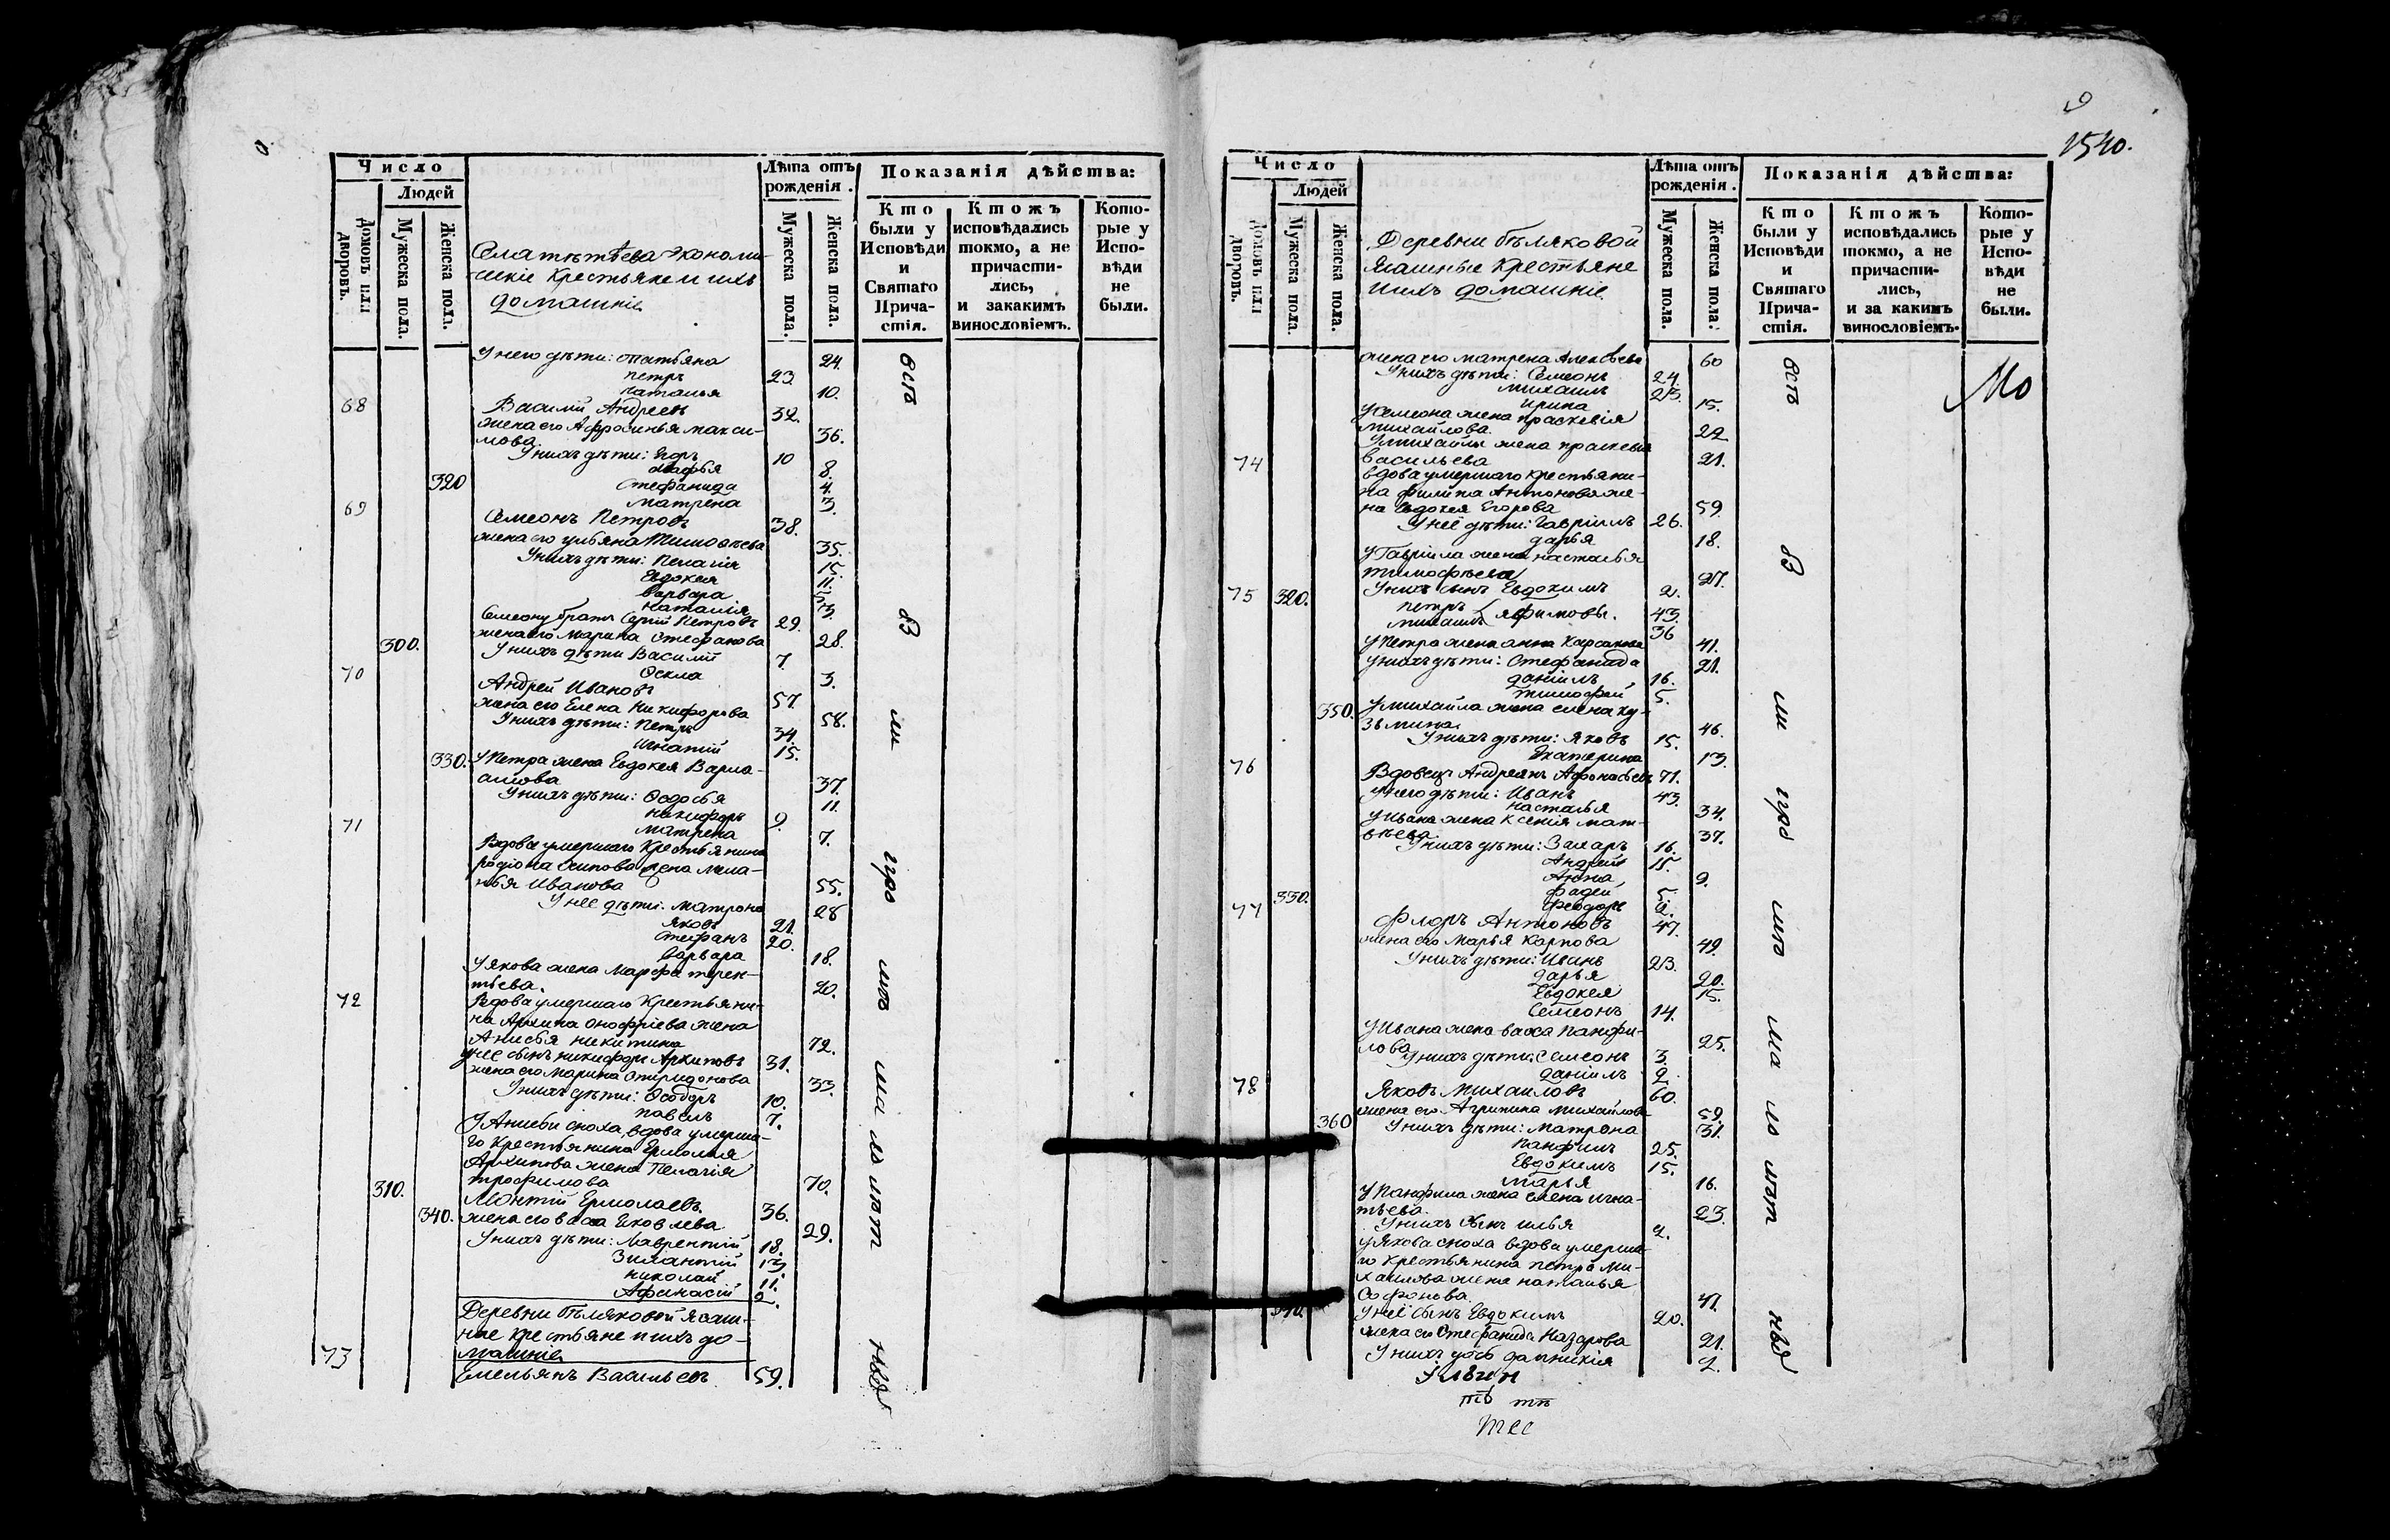 Число
Людей
Домовъ или дворовъ.
Мужеска пола.
Женска пола.
Села экономи-
ческіе крестьяне и ихъ
домашніе
Лѣта отъ рожденія.
Мужеска пола.
Женска пола.
Показанія дѣйства:
Кто были у Исповѣди и Святаго Причастія.
Ктожъ исповѣдались токмо, а не причастились, и закакимъ винословіемъ.
Которые у Исповѣди не были.
У него дѣти: татьяна 24.
петръ 23.
наталья 10.
68 Василій Андреевъ 32.
жена его Афросинья макси-
мова 36.
У нихъ дѣти: Егоръ 10
8.
320 Стефанида 4.
матрена 3.
69 Семеонъ Петровъ 38.
жена его ульяна 35.
У нихъ дѣти: Пелагія 15.
Евдокея 11.
Варвара 5.
наталія 3.
Семеону братъ Сергій Петровъ 29.
жена его Марина Стефанова 28.
300. У нихъ дѣти Василій 7
Фекла 3.
70 Андрей Ивановъ 57.
жена его Елена Никифорова 58.
У нихъ дѣти: Петръ 34.
Игнатій 15.
330. У Петра жена Евдокея Варла-
амова 37.
У нихъ дѣти: Ѳедосья 11.
никифоръ 9.
матрена 7.
71 Вдова умершаго Крестьянина
родіона жена мела-
нья Иванова 55.
У нее дѣти: матрона 28
Яковъ 21.
Стефанъ 20.
Варвара 18.
У якова жена Марфа терен-
тьева. 20.
72 Вдова умершаго Крестьяни-
на Архипа Онофріева жена
Анисья никитина 72.
У нее сынъ никифоръ Архиповъ 31.
жена его Марина Спиридонова 33.
У нихъ дѣти: Ѳеодоръ 10.
павелъ 7.
У Анисьи сноха, вдова умерша-
го Крестьянина Ермолая
Архипова жена Пелагія
трофимова 70.
310. Ермолаевъ 36.
340. жена его васса Яковлева 29.
У нихъ дѣти: Лаврентій 18.
13
николай 11.
Афанасій 2.
Деревни Бѣляковой ясаш-
ные крестьяне и ихъ до-
машніе
73 Емельянъ Васильевъ 59.
1540.
Число
Людей
Домовъ или дворовъ.
Мужеска пола.
Женска пола.
Деревни Бѣляковой
Ясашные крестьяне
и ихъ домашніе
Лѣта отъ рожденія.
Мужеска пола.
Женска пола.
Показанія дѣйства:
Кто были у Исповѣди и Святаго Причастія.
Ктожъ исповѣдались токмо, а не причастились, и за какимъ винословіемъ.
Которые у Исповѣди не были.
жена его матрена Алексѣева 60
У нихъ дѣти: Семеонъ 24.
михаилъ 23.
ирина 15.
У Семеона жена праскевія
михайлова 22
У михайлы жена праскевья
васильева 21.
74 вдова умершаго крестьяни-
на филипа Антонова же-
на Евдокея Егорова 59.
У неё дѣти: Гавріилъ 26.
дарья 18.
У Гавріила жена настасья
тимофѣева 27.
У нихъ сынъ Евдокимъ 2.
75 320. петръ 43.
михаилъ 36
У Петра жена анна 41.
У нихъ дѣти: Стефанида 21.
даніилъ 16.
тимофей 5.
350. У михайла жена елена ку-
зьмина 46.
У нихъ дѣти: Яковъ 15.
Екатерина 13.
76 Вдовецъ Андреянъ Афонасьевъ 71.
У него дѣти: Иванъ 43.
настасья 34.
У ивана жена Ксенія мат-
вѣева 37.
У нихъ дѣти: Захаръ 16.
Андрей 15.
Анна 9.
330. фадей 5.
феодоръ 2.
77 Флоръ Антоновъ 47.
жена его Марья Карпова 49.
У нихъ дѣти: Иванъ 23.
дарья 20.
Евдокея 15.
Семеонъ 14.
У Ивана жена васса панфи-
лова 25.
У нихъ дѣти: Семеонъ 3.
даніилъ 2.
78 Яковъ Михаиловъ 60.
жена его Агрипина михайлова 59.
360 У нихъ дѣти: Матрона 31.
Панфилъ 25.
Евдокимъ 15.
марья 16.
У Панфила жена елена игна-
тьева 23.
У нихъ сынъ илья 2.
У якова сноха вдова умерша-
го крестьянина петра Ми-
хаилова жена наталья
Софонова 47.
У неё сынъ Евдокимъ 20.
жена его Стефанида Назарова 21.
У нихъ дочь 2.